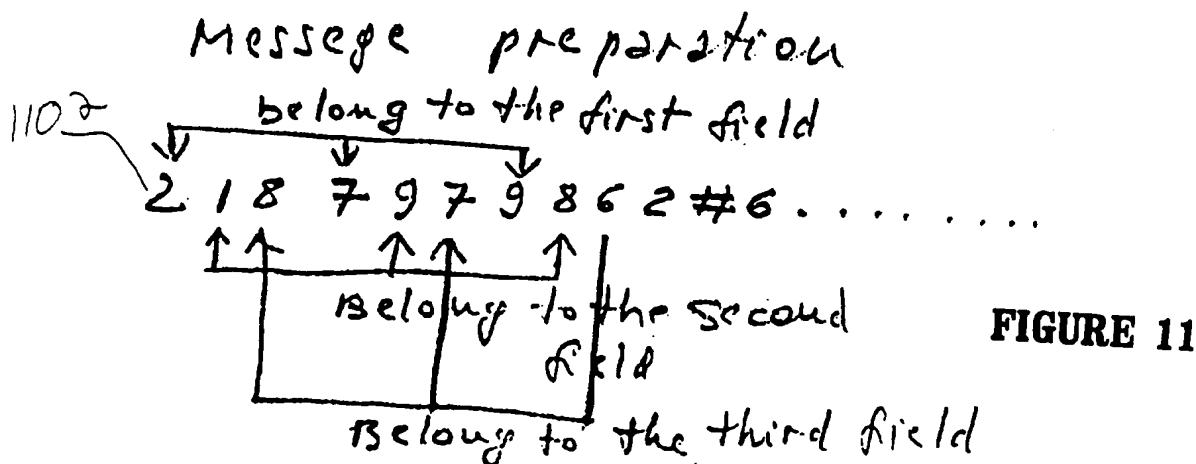 Messege preparation
belong to the first field
1102
2 1 8 7 9 7 9 8 6 2 # 6 . . . . . . . . .
Belong to the second
field
FIGURE 11
Belong to the third field